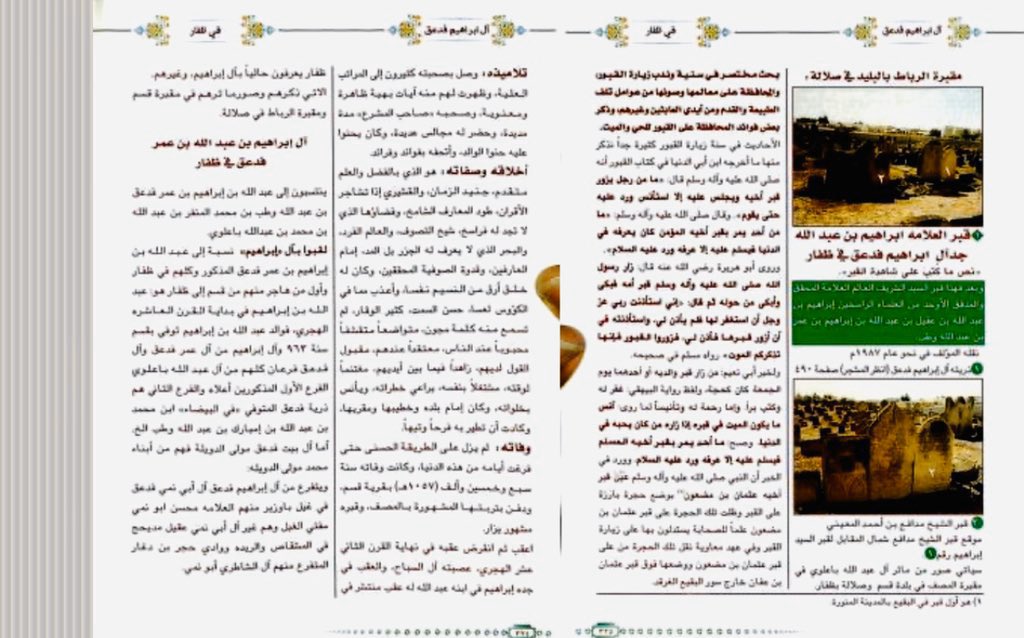 آل ابراهيم فدعق
في ظفار
تلاميذه: وصل بصحبته كثيرون إلى المراتب
العلية، وظهرت لهم منه آيات بهية ظاهرة
ومعنوية، وصحبه «صاحب المشرع» مدة
مديدة، وحضر له مجالس عديدة، وكان يحنوا
عليه حنوا الوالد، وأتحفه بفوائد وفرائد.
أخلاقه وصفاته: هو الذي بالفضل والعلم
متقدم، جنيد الزمان، والقشيري إذا تشاجر
الأقران، طود المعارف الشامخ، وفضاؤها الذي
لا تجد له فراسخ، شيخ التصوف، والعالم الفرد،
والبحر الذي لا يعرف له الجزر بل المد، إمام
العارفين، وقدوة الصوفية المحققين، وكان له
خلق أرق من النسيم نفسا، وأعذب مما في
الكؤوس لعسا، حسن السمت، كثير الوقار، لم
تسمع منه كلمة مجون، متواضعاً متقشفاً
محبوباً عند الناس، معتقداً عندهم، مقبول
القول لديهم، زاهداً فيما بين أيديهم، مغتنماً
لوقته، مشتغلاً بنفسه، يراعي خطراته، ويأنس
بخلواته، وكان إمام بلده وخطيبها ومقريها،
وكادت أن تطير به فرحاً وتيهاً.
وفاته: لم يزل على الطريقة الحسنى حتى
فرغت أيامه من هذه الدنيا، وكانت وفاته سنة
سبع وخمسين وألف (١٠٥٧هـ) بقرية قسم،
ودفن بتربتها المشهورة بالمصف، وقبره
مشهور يزار.
اعقب ثم انقرض عقبه في نهاية القرن الثاني
عشر الهجري، عصبته آل السباح، والعقب في
جده إبراهيم في ابنه عبد الله له عقب منتشر في
ظفار يعرفون حالياً بآل إبراهيم، وغيرهم.
الاتي ذكرهم وصورما ثرهم في مقبرة قسم
ومقبرة الرباط في صلالة.
آل إبراهيم بن عبد الله بن عمر
فدعق في ظفار
ينتسبون إلى عبد الله بن إبراهيم بن عمر فدعق
بن عبد الله وطب بن محمد المنفر بن عبد الله
بن محمد بن عبدالله باعلوي.
لقبوا بآل «إبراهيم» نسبة إلى عبد الله بن
إبراهيم بن عمر فدعق المذكور وكلهم في ظفار
وأول من هاجر منهم من قسم إلى ظفار هو: عبد
الله بن إبراهيم في بداية القرن العاشره
الهجري، فوالد عبد الله بن إبراهيم توفى بقسم
سنة ٩٦٣ وآل إبراهيم من آل عمر فدعق وآل
فدعق فرعان كلهم من آل عبد الله باعلوي
الفرع الأول المذكورين أعلاه والفرع الثاني هم
ذرية فدعق المتوفي «في البيضاء» ابن محمد
بن عبد الله بن إمبارك بن عبد الله وطب الخ.
أما آل بيت فدعق مولى الدويلة فهم من أبناء
محمد مولى الدويله:
ويتفرع من آل إبراهيم فدعق آل أبي نمي فدعق
في غيل باوزير منهم العلامه محسن ابو نمي
مفتي الغيل وهم غير آل أبي نمي عقيل مديحج
في المنقاص والريده ووادي حجر بن دغار
المتفرع منهم آل الشاطري أبو نمي.
٣٢٤
آل ابراهيم فدعق
في ظفار
مقبرة الرباط بالبليد في صلالة.
١ قبر العلامه ابراهيم بن عبد الله
جدآل ابراهيم فدعق في ظفار
«نص ما كتب على شاهدة القبر».
وبعد فهذا قبر السيد الشريف العالم العلامة المحقق
والمدقق الأوحد من العلماء الراسخين إبراهيم بن
عبد الله بن عقيل بن عبد الله بن إبراهيم بن عمر
بن عبد الله وطب.
نقله المؤلف في نحو عام ١٩٨٧م
١ ذريته آل إبراهيم فدعق (انظر المشجر) صفحة ٤٩٠
٢ قبر الشيخ مدافع بن أحمد المعيني
موقع قبر الشيخ مدافع شمال المقابل لقبر السيد
إبراهيم رقم ١
سياتي صور من ماثر آل عبد الله باعلوي في
مقبرة المصف في بلدة قسم وصلالة بظفار.
بحث مختصر في سنية وندب زيارة القبور؛
والمحافظة على معالمها وصونها من عوامل تلف
الطبيعة والقدم ومن أيدي العابثين وغيرهم، وذكر
بعض فوائد المحافظة على القبور للحي والميت.
الأحاديث في سنة زيارة القبور كثيرة جداً نذكر
منها ما أخرجه ابن أبي الدنيا في كتاب القبور أنه
صلى الله عليه وآله وسلم قال: «ما من رجل يزور
قبر أخيه ويجلس عليه إلا استأنس ورد عليه
حتى يقوم». وقال صلى الله عليه وآله وسلم: «ما
من أحد يمر بقبر أخيه المؤمن كان يعرفه في
الدنيا فيسلم عليه إلا عرفه ورد عليه السلام».
وروى أبو هريرة رضي الله عنه قال: زار رسول
الله صلى الله عليه وآله وسلم قبر أمه فبكى
وأبكى من حوله ثم قال: «إني استأذنت ربي عز
وجل أن استغفر لها فلم يأذن لي، واستأذنته في
أن أزور قبرها فأذن لي، فزوروا القبور فإنها
تذكركم الموت» رواه مسلم في صحيحه.
ولخبر أبي نعيم: من زار قبر والديه أو أحدهما يوم
الجمعة كان كحجة، ولفظ رواية البيهقي غفر له
وكتب برأ. وإما رحمة له وتأنيساً لما روى: آنس
ما يكون الميت في قبره إذا زاره من كان يحبه في
الدنيا. وصبح: ما أحد يمر بقبر أخيه المسلم
فيسلم عليه إلا عرفه ورد عليه السلام. وورد في
الخبر أن النبي صلى الله عليه وآله وسلم عيّن قبر
أخيه عثمان بن مضعون بوضع حجرة بارزة
على القبر وظلت تلك الحجرة على قبر عثمان بن
مضعون علماً للصحابة يستدلون بها على زيارة
القبر وفي عهد معاوية نقل تلك الحجرة من على
قبر عثمان بن مضعون ووضعها فوق قبر عثمان
بن عفان خارج سور البقيع الغرقد.
١) هو أول قبر في البقيع بالمدينة المنورة.
٣٢٥